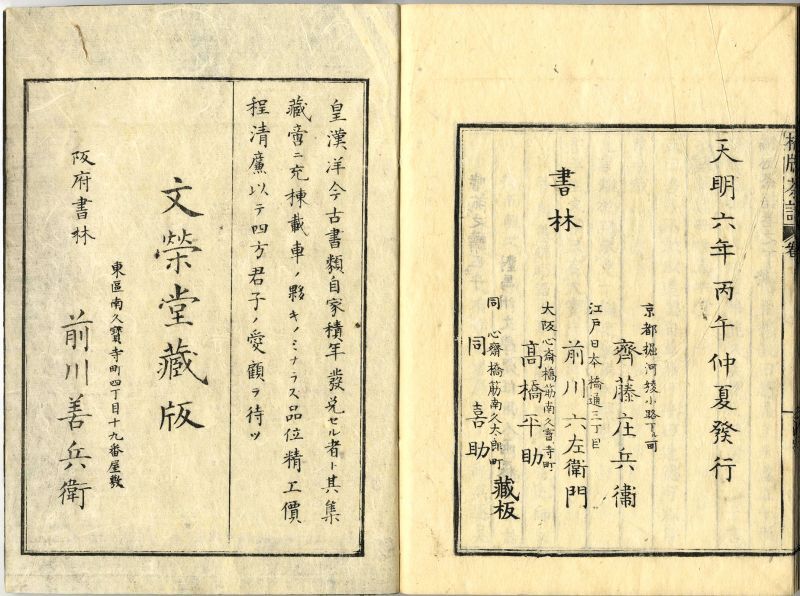 天明六年丙午仲夏發行
書林
京都堀河綾小路下ル町
齊藤庄兵衞
江戸日本橋通三丁目
前川六左衛門
大阪心斎橋筋南久寳寺町
髙橋平助
同 心齋橋筋南久太郎町
同 喜助
藏板
皇漢洋今古書類自家積年發兌セル者ト其集
藏啻ニ充棟載車ノ夥キノミナラス品位精工價
程清廉以テ四方君子ノ愛顧ヲ待ツ
文榮堂藏版
阪府書林
東區南久寳寺町四丁目十九番屋敷
前川善兵衛